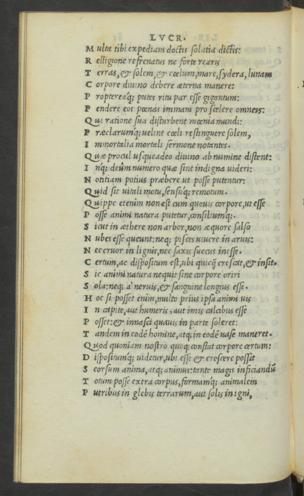 LVCR.
M ulta tibi expediam doctis solatia dictis:
R elligione refrenatus ne forte rearis
T erras, & solem, & cœlum, mare, sydera, lunam
C orpore diuino debere æterna manere:
P roptereaq; putes ritu par esse gigantum:
P endere eos pœnas immani pro scelere omneis:
Q ui ratione sua disturbent mœnia mundi:
P ræclarumq; uelint cœli restinguere solem,
I mmortalia mortali sermone notantes.
Q uæ procul usqueadeo diuino ab numine distent:
I nq; deûm numero quæ sint indigna uideri:
N otitiam potius præbere ut posse putentur:
Q uid sit uitali motu, sensuq; remotum.
Q uippe etenim non est cum quouis corpore, ut esse
P osse animi natura putetur, consiliumq;.
S icut in æthere non arbor, non æquore salso
N ubes esse queunt: neq; pisces uiuere in aruis:
N ec cruor in lignis, nec saxis succus inesse.
C ertum, ac dispositum est, ubi quicq̃ crescat, & insit.
S ic animi natura nequit sine corpore oriri
S ola: neq; a' neruis, & sanguine longius esse.
H oc si posset enim, multo prius ipsa animi uis
I n capite, aut humeris, aut imis calcibus esse
P osset: & innasci quauis in parte soleret:
T andem in eodẽ homine, atq; in eodẽ uase maneret.
Q uod quoniam nostro quoq; constat corpore certum:
D ispositumq; uidetur, ubi esse & crescere possit
S eorsum anima, atq; animus: tanto magis inficiandũ
T otum posse extra corpus, formamq; animalem
P utribus in glebis terrarum, aut solis in igni,